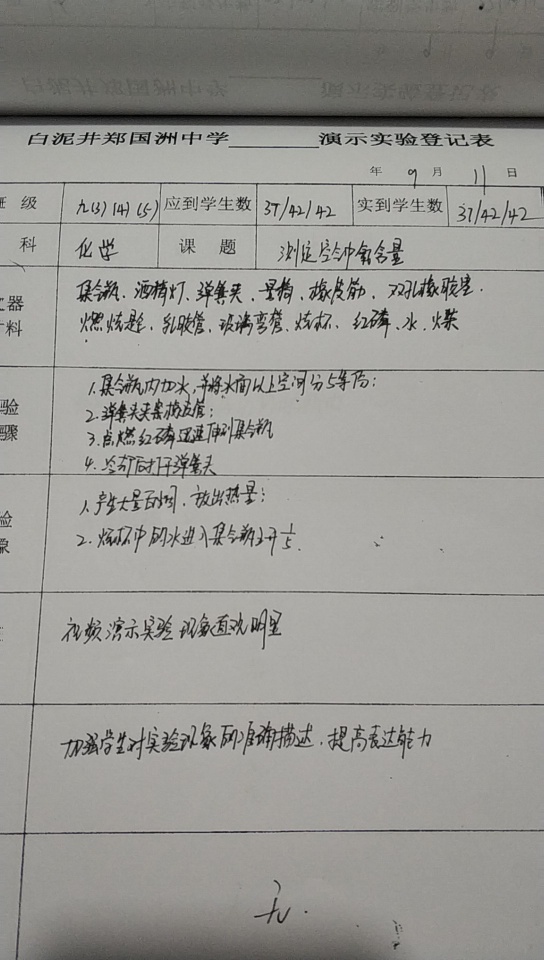 白泥井郑国洲中学______演示实验登记表
年 9 月 11 日
级 九(3)(4)(5) 应到学生数 37/42/42 实到学生数 37/42/42
科 化学 课 题 测定空气中氧含量
器 集合瓶、酒精灯、弹簧夹、量筒、橡皮筋、双孔橡胶塞、
料 燃烧匙、乳胶管、玻璃弯管、烧杯、红磷、水、火柴
1.集合瓶内加水,并将水面以上空间分5等份;
验 2.弹簧夹夹紧橡皮管;
骤 3.点燃红磷迅速伸到集合瓶
4.冷却后打开弹簧夹
验 1.产生大量白烟、放出热量;
象 2.烧杯中的水进入集合瓶上升1/5.
视频演示实验现象直观明显
加强学生对实验现象的准确描述、提高表达能力
无.